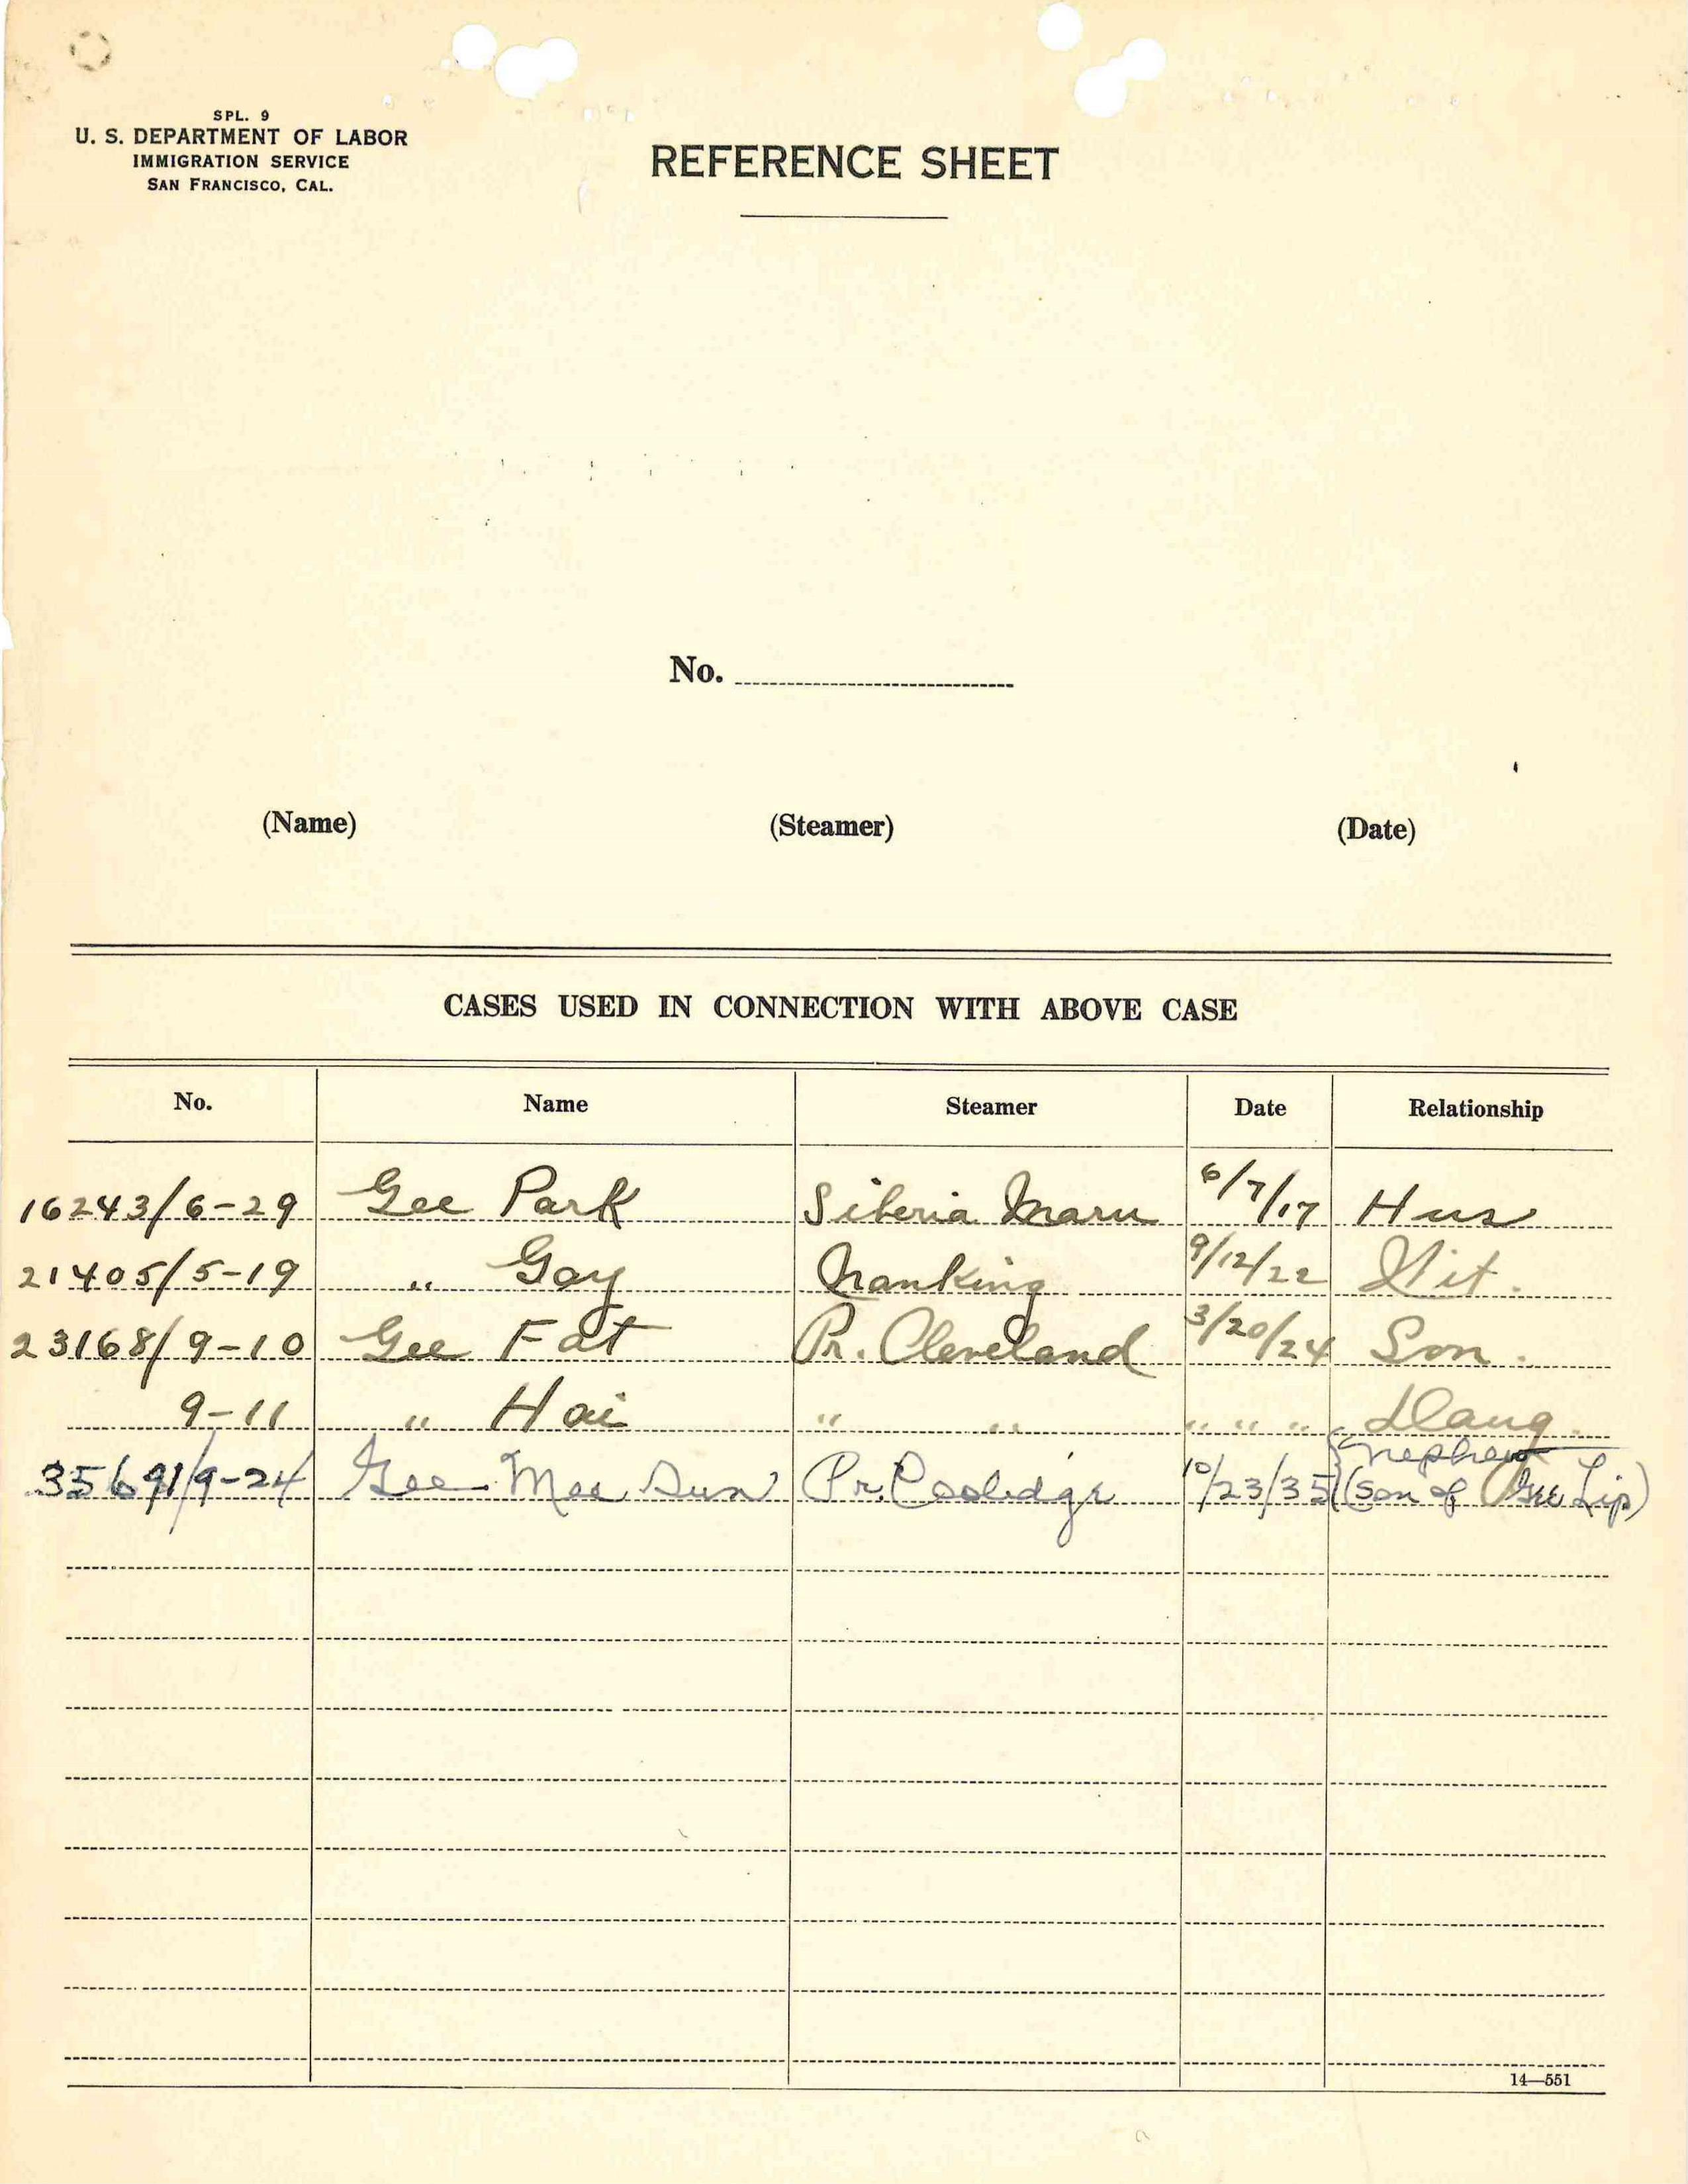 SPL. 9
U. S. DEPARTMENT OF LABOR
IMMIGRATION SERVICE
SAN FRANCISCO, CAL.
REFERENCE SHEET
No.
(Name) (Steamer) (Date)
CASES USED IN CONNECTION WITH ABOVE CASE
No. Name Steamer Date Relationship
16243/6-29 Gee Park Siberia Maru 6/7/17 Hus
21405/5-19 " Gay Nanking 9/12/22 Wit.
23168/9-10 Gee Fat Pr. Cleveland 3/20/24 Son.
9-11 " Hai " " " " " Daug.
35691/9-24 Gee Moe Sun Pr. Coolidge 10/23/35 Nephew
(Son of Gee Lip)
14—551